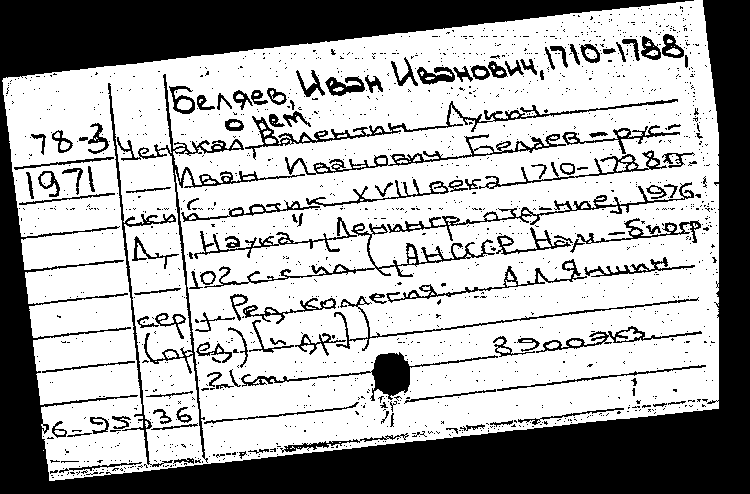 Беляев, Иван Иванович, 1710-1788,
о нем
78-3 Ченакал, Валентин Лукич.
1971 Иван Иванович Беляев – рус-
ский оптик XVIII века 1710-1788 гг.
Л., „Наука“, [Ленингр. отд-ние], 1976.
102 с. с ил. ([АН СССР. Науч.-биогр.
сер.]. Ред. коллегия: А.Л. Яншин
(пред.) [и др.])
21 cm. 8900 экз.
76-95336